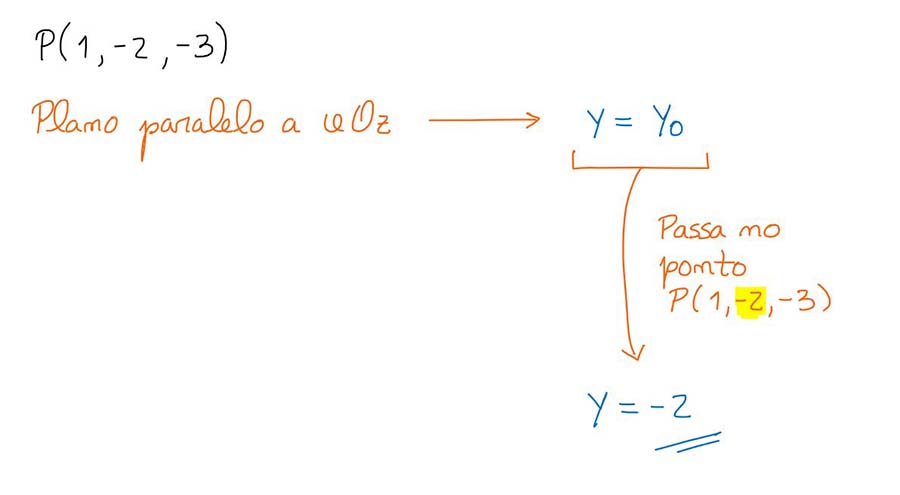 P(1,-2,-3)
Plano paralelo a xOz
y = y₀
Passa no
ponto
P(1,-2,-3)
y = -2